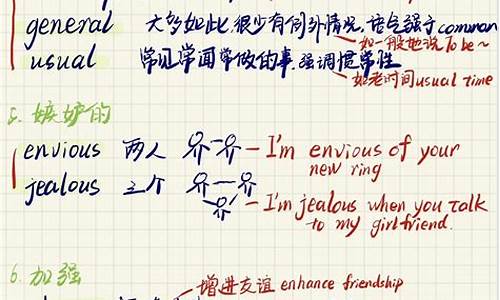 general 大多如此，很少有例外情况，语气强于common
如一般地说To be~
usual 常见常闻常做的事，强调惯常性
如老时间usual time
5. 嫉妒的
envious 两人 — I'm envious of your new ring
jealous 三个 — I'm jealous when you talk to my girlfriend.
6. 加强
增进友谊 enhance friendship